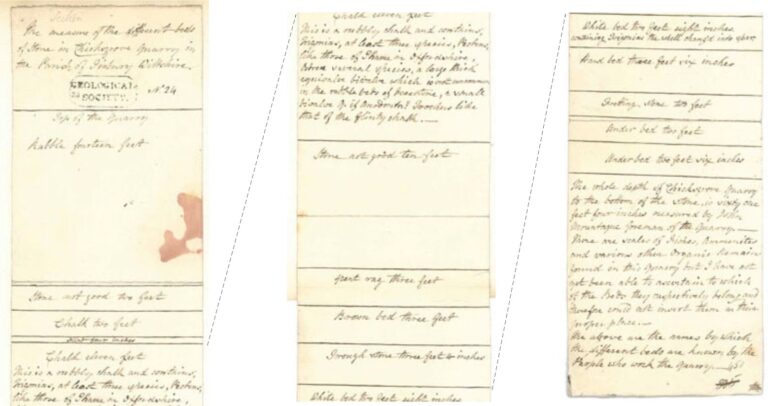 Section
The measure of the different beds
of Stone in Chicksgrove Quarry in
the Parish of Tisbury Wiltshire.
GEOLOGICAL
SOCIETY.
No 24
Top of the Quarry
Rubble fourteen feet
Stone not good two feet
Chalk two feet
Flint four inches
Chalk eleven feet
This is a rubbly chalk and contains,
Trigonias, at least three species, Pectens,
like those of Thame in Oxfordshire,
Chalk eleven feet
This is a rubbly chalk and contains,
Trigonias, at least three species, Pectens,
like those of Thame in Oxfordshire,
several species, a large thick
equivalve bivalve which is not uncommon
in the rubble beds of , a small
bivalve & if like
that of the flinty chalk. —
Stone not good ten feet
Great rag three feet
Brown bed three feet
Through stone three feet 4 inches
White bed two feet eight inches
White bed two feet eight inches
containing Trigonias the shell chang'd into spar
Hard bed three feet six inches
Fretting Stone two feet
Under bed two feet
Under bed two feet six inches
The whole depth of Chicksgrove Quarry
to the bottom of the Stone, is sixty one
feet four inches measured by John
Montague foreman of the Quarry. —
None are scales of Fishes, Ammonites
and various other Organic Remains
found in this Quarry but I have not
yet been able to ascertain to which
of the Beds they respectively belong and
therefore could not insert them in their
proper place. —
The above are the names by which
the different beds are known by the
People who work the Quarry. —